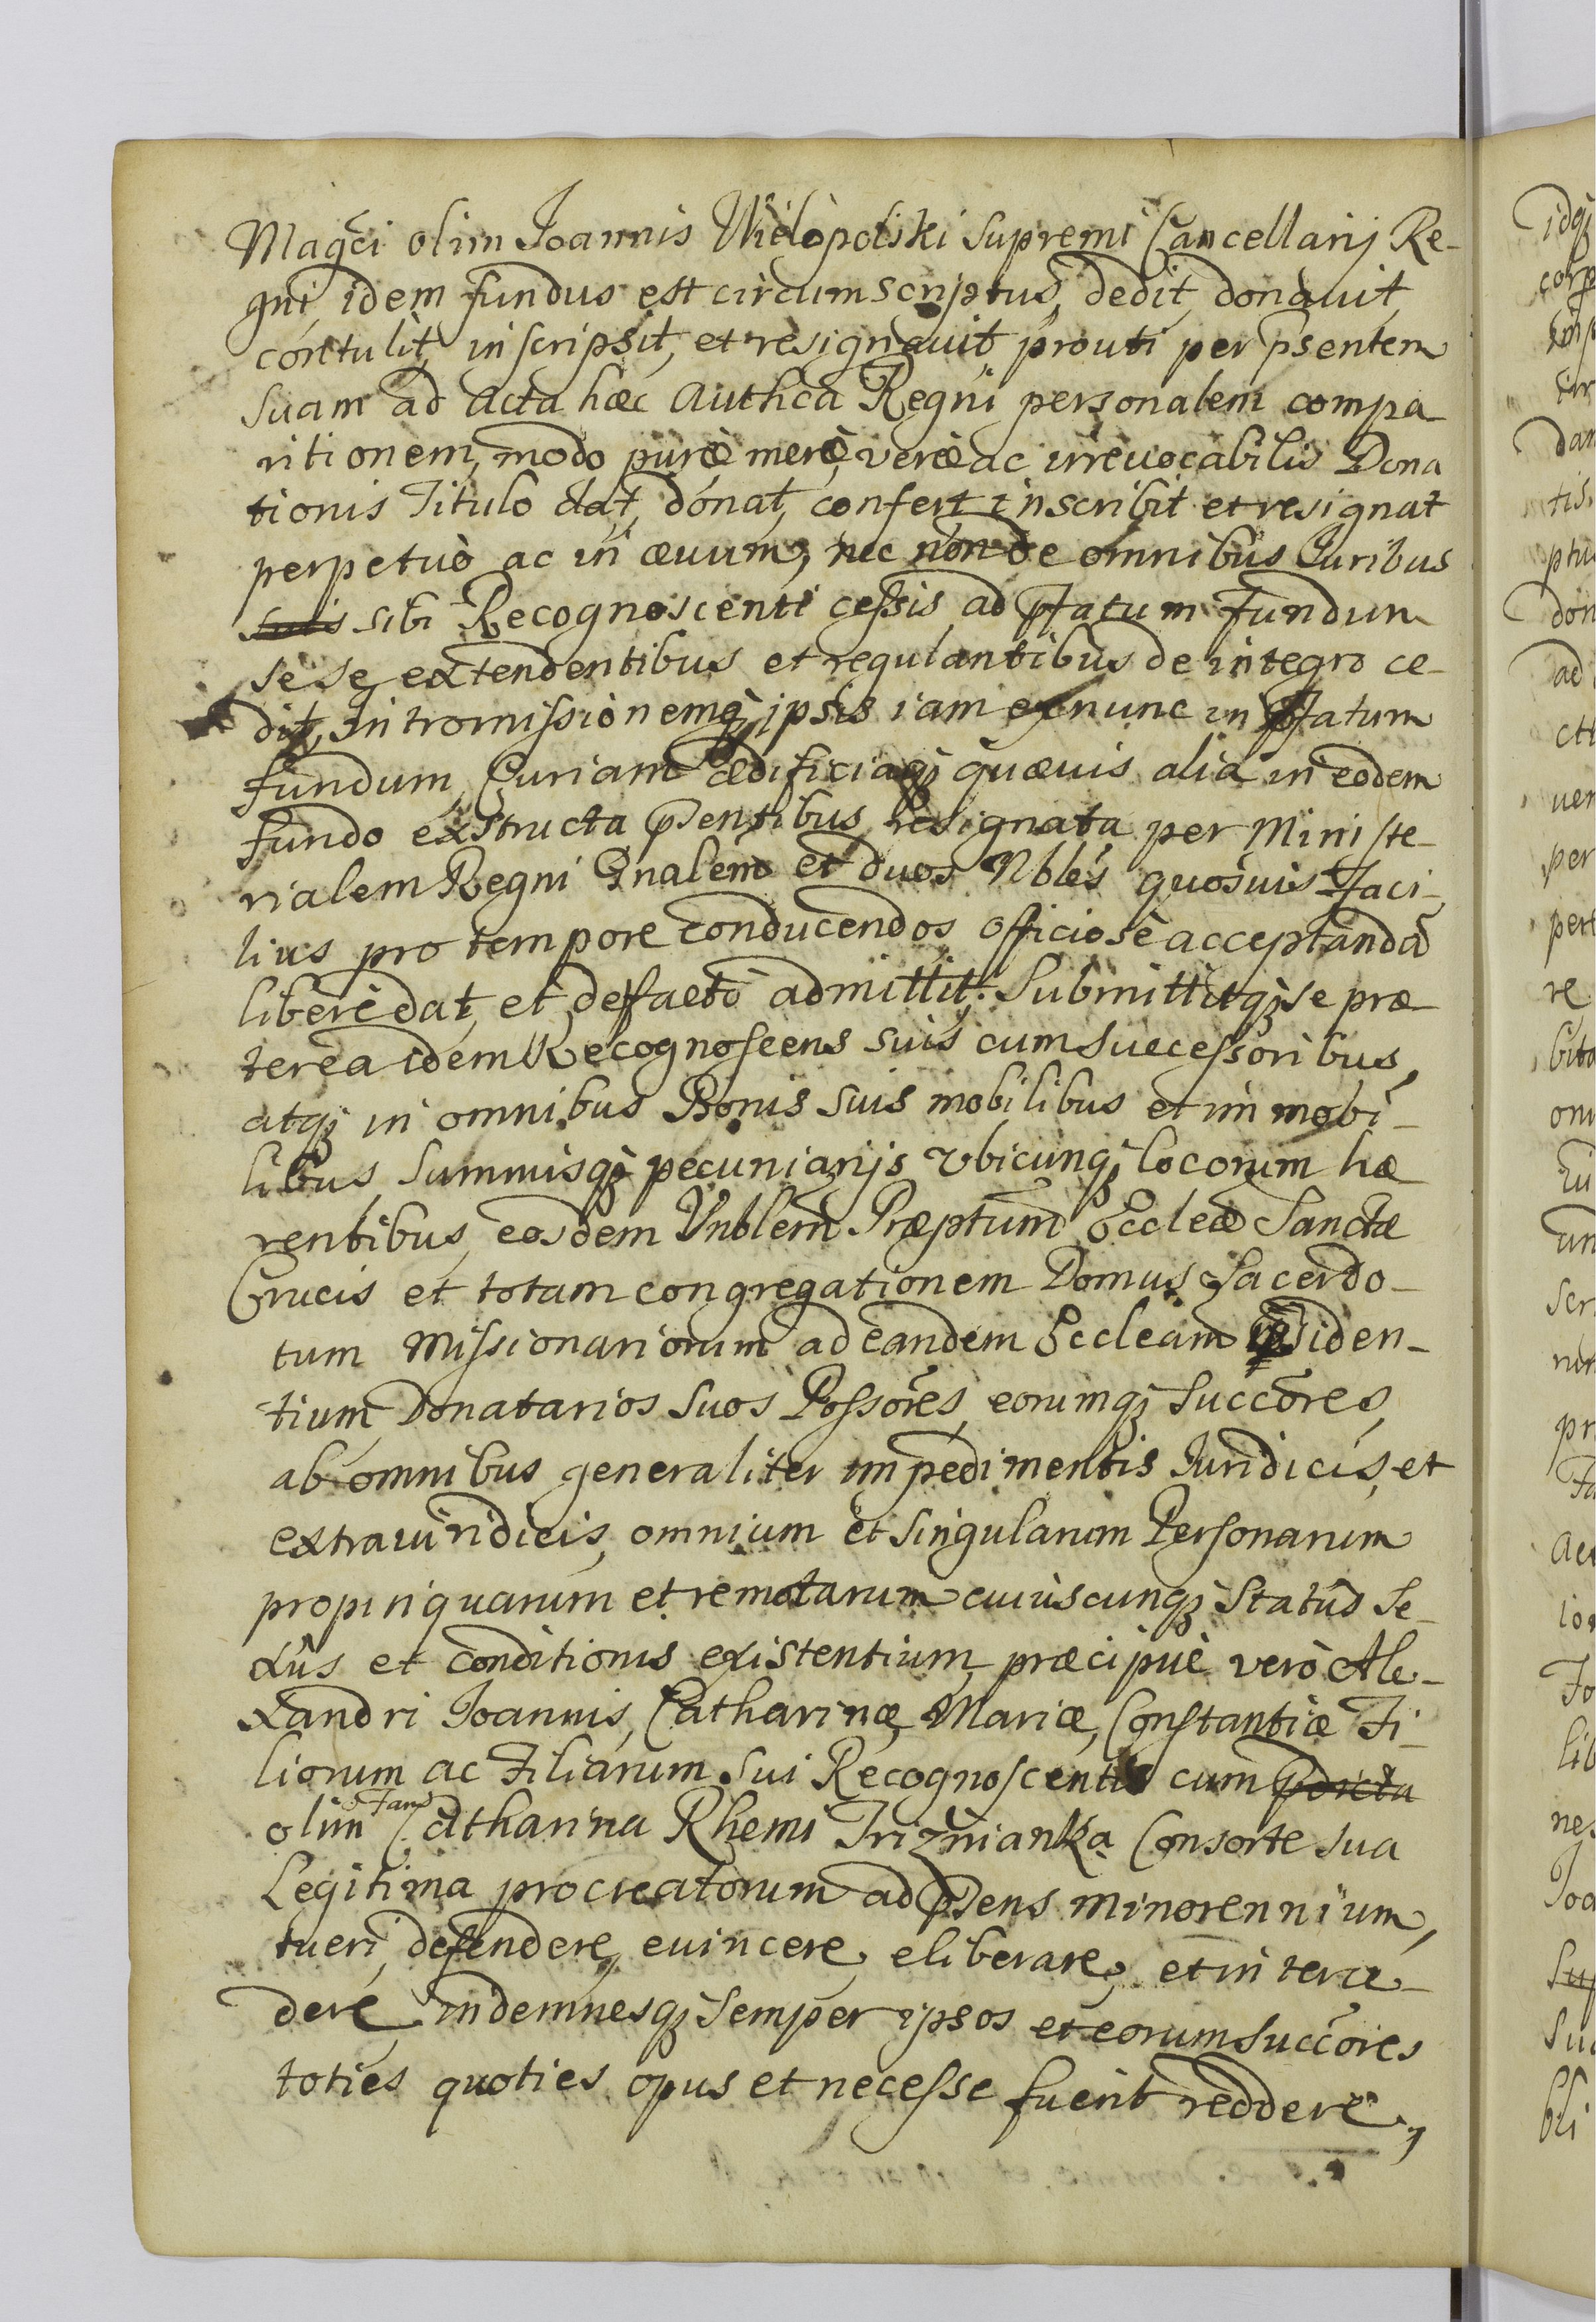 Magci olim Joannis Wielopolski Supremi Cancellarij Re-
gni, idem fundus est circumscriptus, dedit, donavit,
contulit, inscripsit, et resignavit, prouti per psentem
suam ad Acta hæc Authca Regni personalem compa-
ritionem, modo puræ meræ, veræ ac irrevocabilis Dona
tionis Titulo dat, donat, confert inscribit et resignat
perpetuò ac in ævum, nec non de omnibus Iuribus
suis sibi Recognoscenti cessis ad pftatum Fundum
sese extendentibus et regulantibus de integro ce-
dit, Intromissionemq; ipsis iam ex nunc in pftatum
fundum, Curiam ædificiaq; quævis alia in eodem
fundo exstructa psentibus resignata per Ministe-
rialem Regni Gnalem et duos Nbles quosvis Faci-
lius pro tempore conducendos officiosè acceptanda
liberè dat, et defacto admittit. Submittitq; se præ-
terea idem Recognoscens suis cum successoribus,
atq; in omnibus Bonis suis mobilibus et immobi-
libus, Summisq; pecuniarijs ubicunq; locorum hæ
rentibus, eosdem Vnblem Præptum Eccleæ Sanctæ
Crucis et totam congregationem Domus Sacerdo-
tum Missionariorum ad eandem Eccleam residen-
tium, Donatarios suos Possores, eorumq; Succores,
ab omnibus generaliter impedimentis Iuridicis, et
extraiuridicis, omnium et singularum Personarum
propinquarum et remotarum cuiuscunq; Status Se-
xus et conditionis existentium, præcipuè verò Ale-
xandri Joannis, Catharinæ, Mariæ, Constantiæ Fi-
liorum ac Filiarum sui Recognoscentis cum pdicta
olim Fam Catharina Rhemi Trizńianka Consorte sua
Legitima procreatorum ad psens minorennium,
tueri, defendere, evincere, eliberare, et interce-
dere, indemnesq; semper ipsos et eorum succores
toties quoties opus et necesse fuerit reddere,